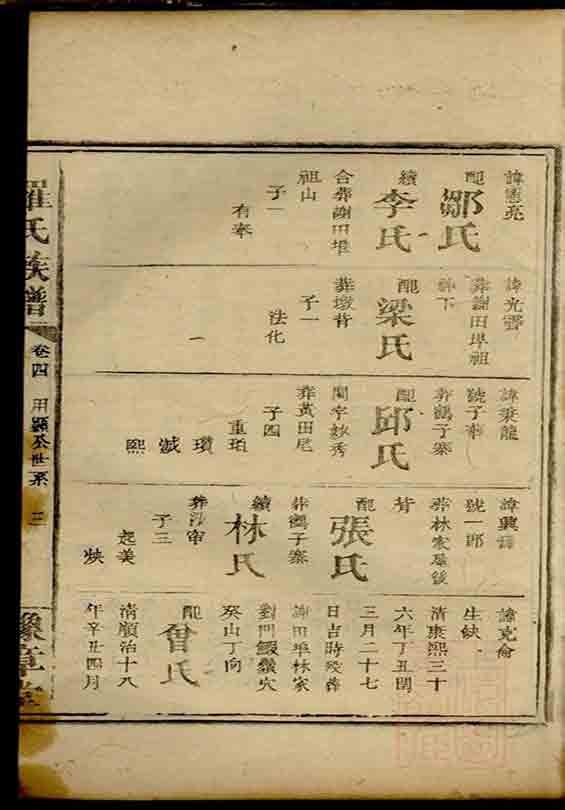 配
鄒氏
續
李氏
合葬謝田埠
祖山
子一
有奉
諱光
葬謝田埠祖
配
梁氏
葬墩背
子一
法化
諱秉龍
號子
葬鶴子寨
配
邱氏
閨字妙秀
葬黃田尾
子四
重珀
瓚
瑊
熙
諱興
號一郎
葬林家屋後
背
配
張氏
葬鶴子寨
續
林氏
子三
起美
諱克倫
生缺
清康熙三十
六年丁丑閏
三月二十七
日吉時歿葬
謝田埠林家
對門
癸山丁向
配
曾氏
清順治十八
年辛丑四月
羅氏族譜
卷四
用顯公世系
三
豫章堂